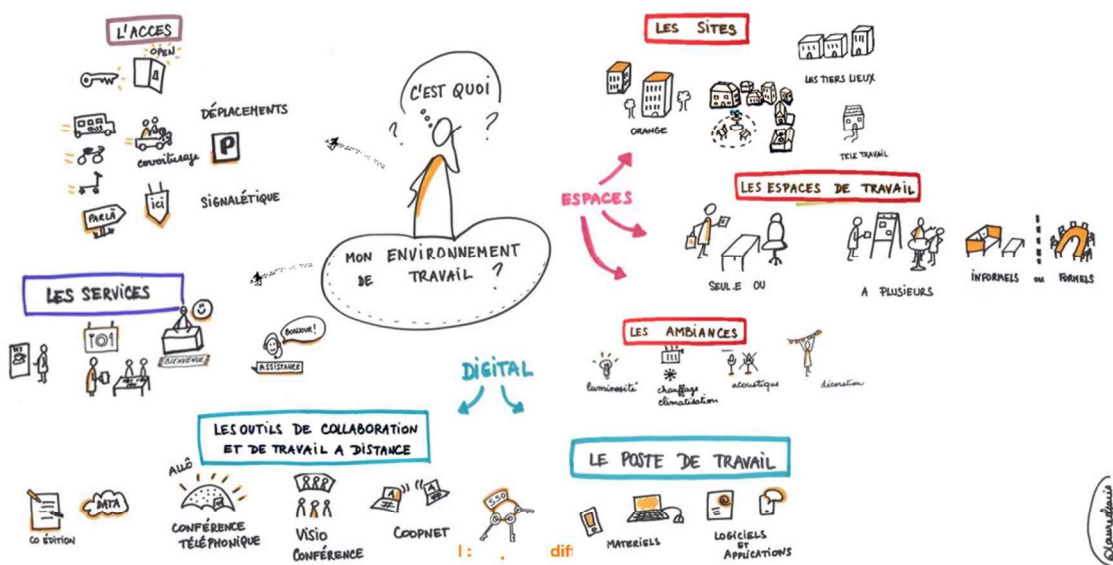 L'ACCES
OPEN
DÉPLACEMENTS
BUS
covoiturage
P
SIGNALÉTIQUE
PARLÀ
ici
C'EST QUOI
?
?
MON ENVIRONNEMENT
DE TRAVAIL ?
LES SERVICES
BIENVENUE
BONJOUR!
ASSISTANCE
ESPACES
LES SITES
ORANGE
LES TIERS LIEUX
TELETRAVAIL
LES ESPACES DE TRAVAIL
SEUL.E OU
A PLUSIEURS
INFORMELS ou FORMELS
LES AMBIANCES
luminosité
chauffage
climatisation
acoustique
décoration
DIGITAL
LES OUTILS DE COLLABORATION
ET DE TRAVAIL A DISTANCE
CO EDITION
DATA
ALLÔ
CONFÉRENCE
TÉLÉPHONIQUE
VISIO
CONFÉRENCE
COOPNET
SSO
LE POSTE DE TRAVAIL
MATERIELS
LOGICIELS
ET
APPLICATIONS
l : . diff